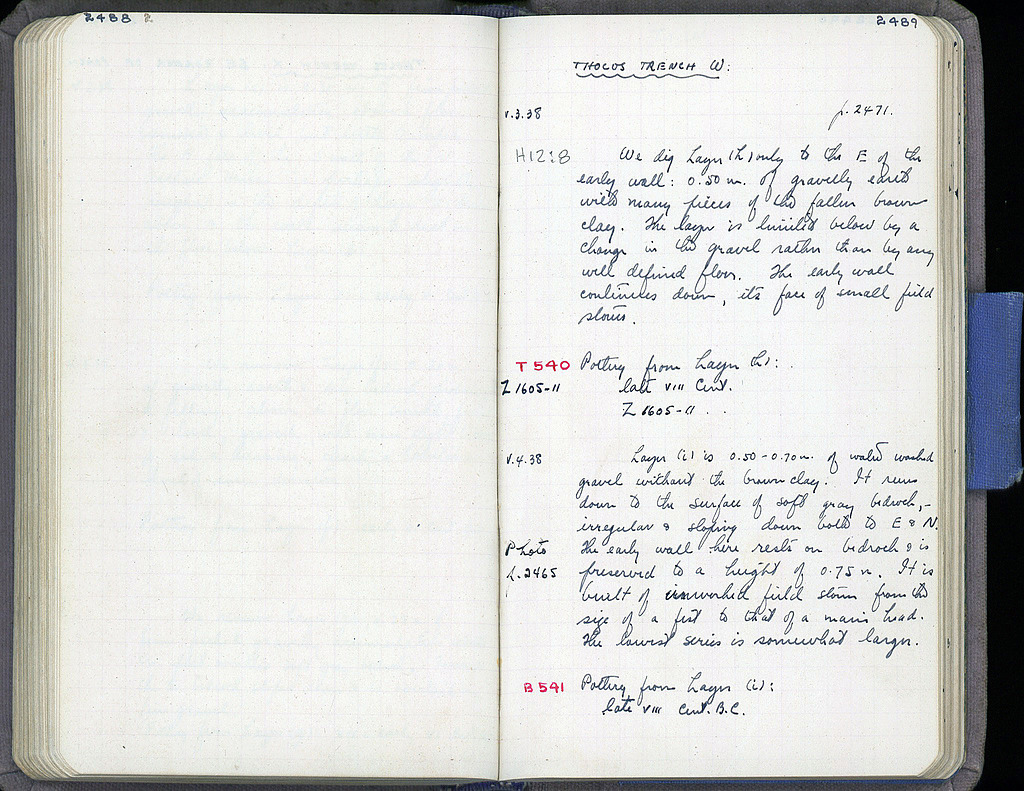 2488 2
2489
THOLOS TRENCH W:
V.3.38
p. 2471.
H12:8
We dig Layer (h) only to the E of the
early wall: 0.50 m. of gravelly earth
with many pieces of the fallen brown
clay. The layer is limited below by a
change in the gravel rather than by any
well defined floor. The early wall
continues down, its face of small field
stones.
T 540 Pottery from Layer (h):
Z 1605-11 late VIII Cent.
Z 1605-11 . .
V.4.38 Layer (i) is 0.50-0.70 m. of water washed
gravel without the brown clay. It runs
down to the surface of soft gray bedrock,-
irregular & sloping down both to E & N.
Photo The early wall here rests on bedrock & is
p. 2465 preserved to a height of 0.75 m. It is
built of unworked field stones from the
size of a fist to that of a man's head.
The lowest series is somewhat larger.
B 541 Pottery from Layer (i):
late VIII Cent. B.C.